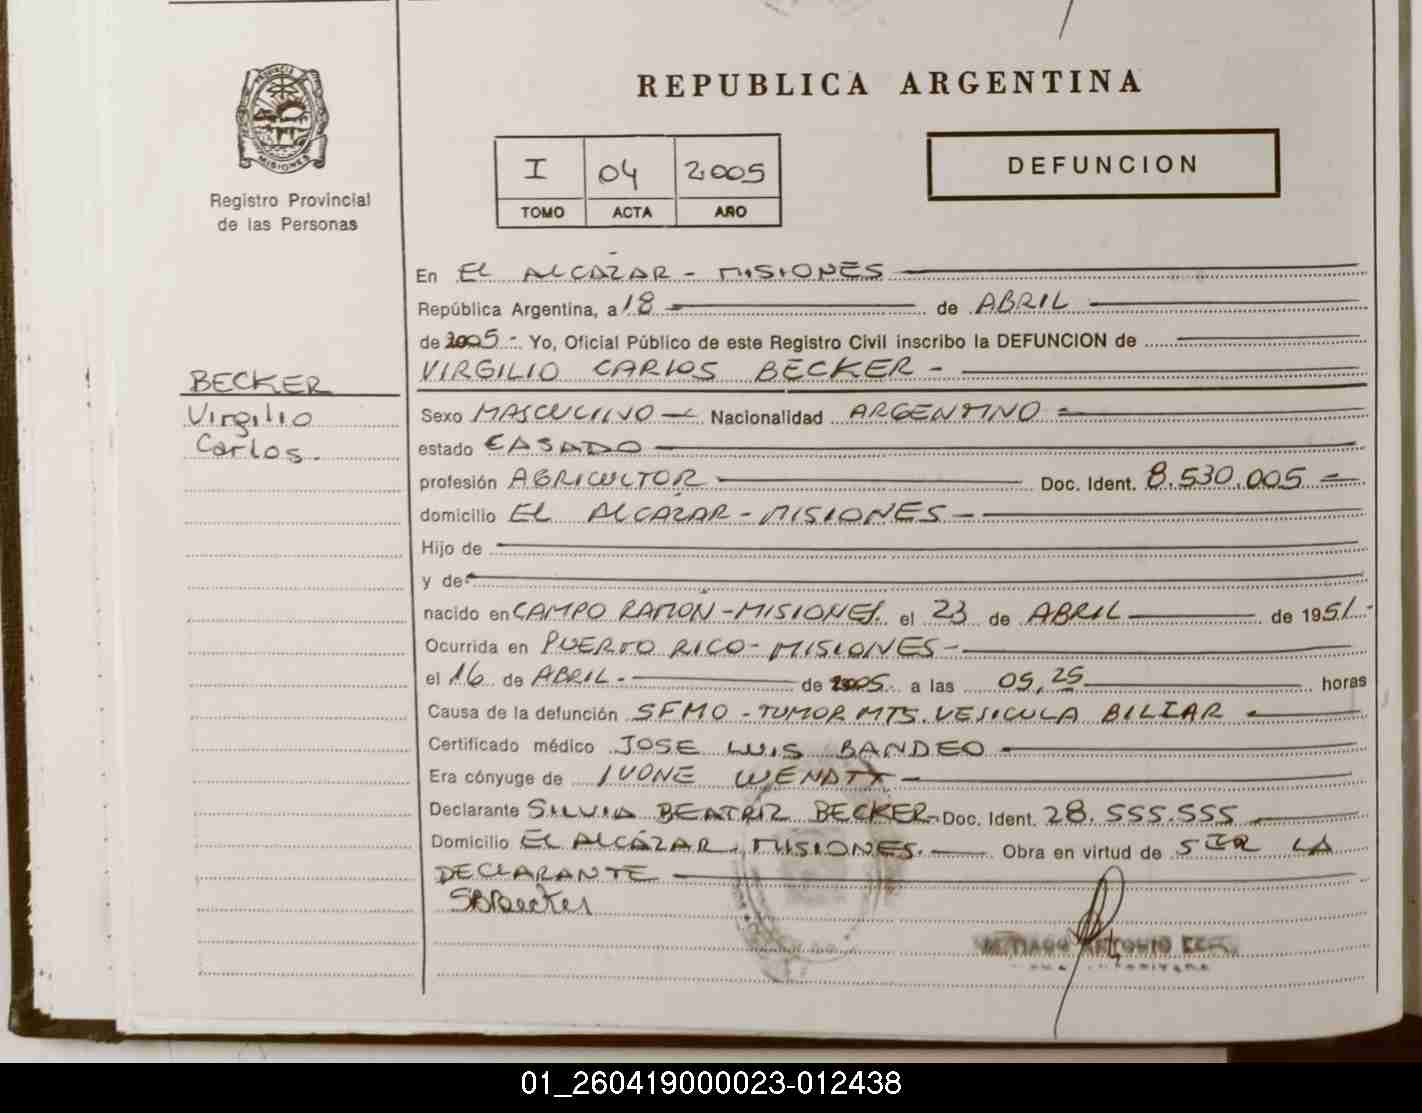 REPUBLICA ARGENTINA
PROVINCIA DE MISIONES
Registro Provincial
de las Personas
I 04 2005
TOMO ACTA AÑO
DEFUNCION
En EL ALCAZAR - MISIONES
República Argentina, a 18 de ABRIL
de 2005 - Yo, Oficial Público de este Registro Civil inscribo la DEFUNCION de
VIRGILIO CARLOS BECKER -
BECKER
Virgilio
Carlos.
Sexo MASCULINO - Nacionalidad ARGENTINO
estado CASADO
profesión AGRICULTOR Doc. Ident. 8.530.005
domicilio EL ALCAZAR - MISIONES -
Hijo de
y de
nacido en CAMPO RAMON - MISIONES. el 23 de ABRIL de 1951 -
Ocurrida en PUERTO RICO - MISIONES -
el 16 de ABRIL - de 2005 a las 05,25 horas
Causa de la defunción SFMO - TUMOR MTS. VESICULA BILIAR
Certificado médico JOSE LUIS BANDEO
Era cónyuge de IVONE WENDTT
Declarante SILVIA BEATRIZ BECKER. Doc. Ident. 28.555.555
Domicilio EL ALCAZAR. MISIONES. Obra en virtud de SER LA
DECLARANTE
SBBecker
ANTONIO
01_260419000023-012438